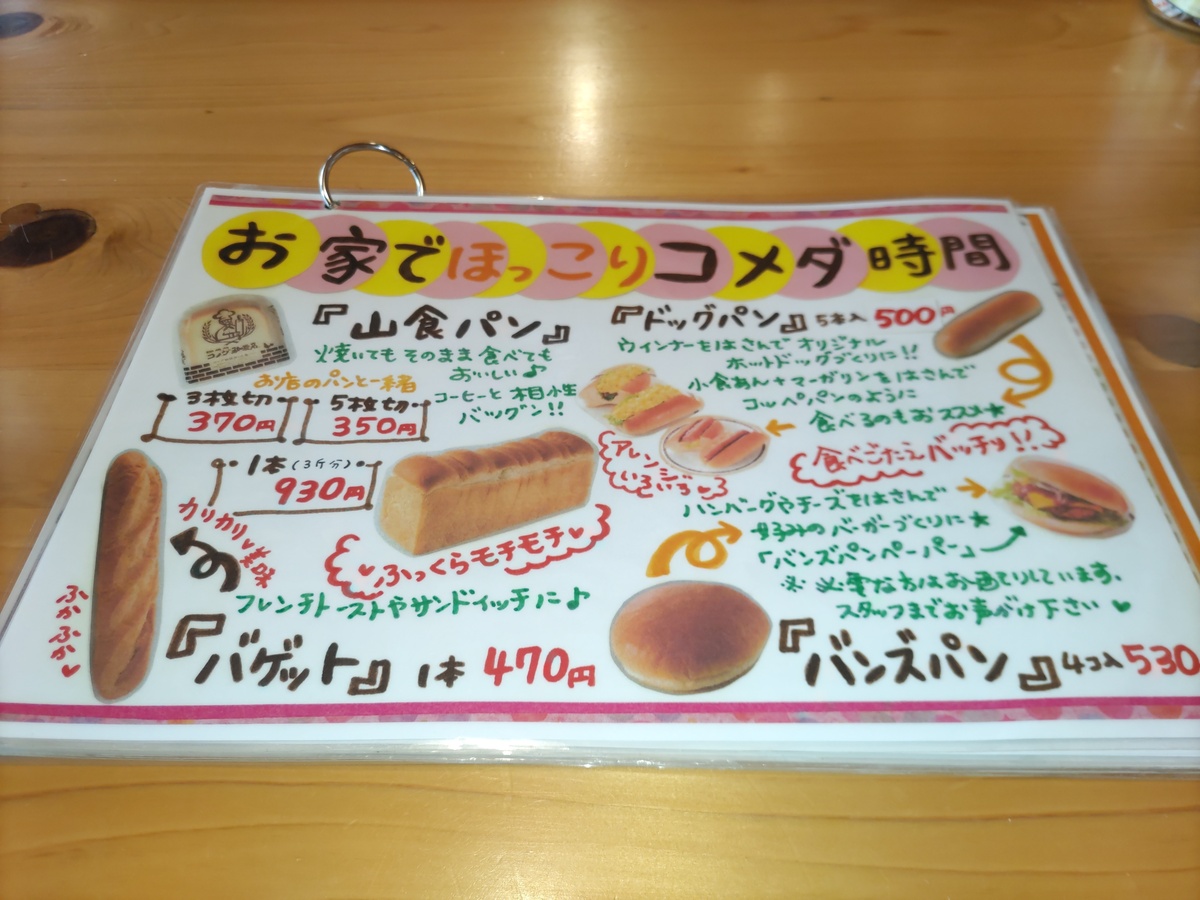 お家でほっこりコメダ時間
『山食パン』
焼いてもそのまま食べても
おいしい♪
お店のパンと一緒
コーヒーと相性
バッグン!!
3枚切
370円
5枚切
350円
1本(3斤分)
930円
ふっくらモチモチ
フレンチトーストやサンドイッチに♪
カリカリ美味
ふかふか
『バゲット』 1本 470円
『ドッグパン』 5本入 500円
ウインナーをはさんでオリジナル
ホットドッグづくりに!!
小倉あん+マーガリンをはさんで
コッペパンのように
食べるのもおススメ★
アレンジ
いろいろ
食べごたえバッチリ!!
ハンバーグやチーズをはさんで
好みのバーガーづくりに★
「バンズパンペーパー」
※必要な方はお画しています。
スタッフまでお声がけ下さい
『バンズパン』 4コ入 530